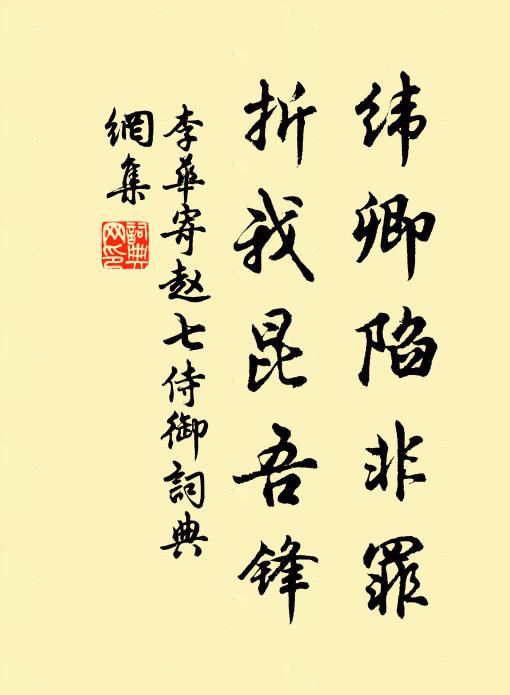 纬卿陷非罪
折我昆吾锋
李华寄赵七侍御詞典
網集
詞典网印